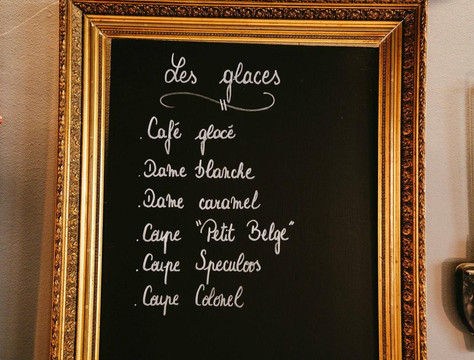 Les glaces
. Café glacé
. Dame blanche
. Dame caramel
. Coupe "Petit Belge"
. Coupe Speculoos
. Coupe Colonel